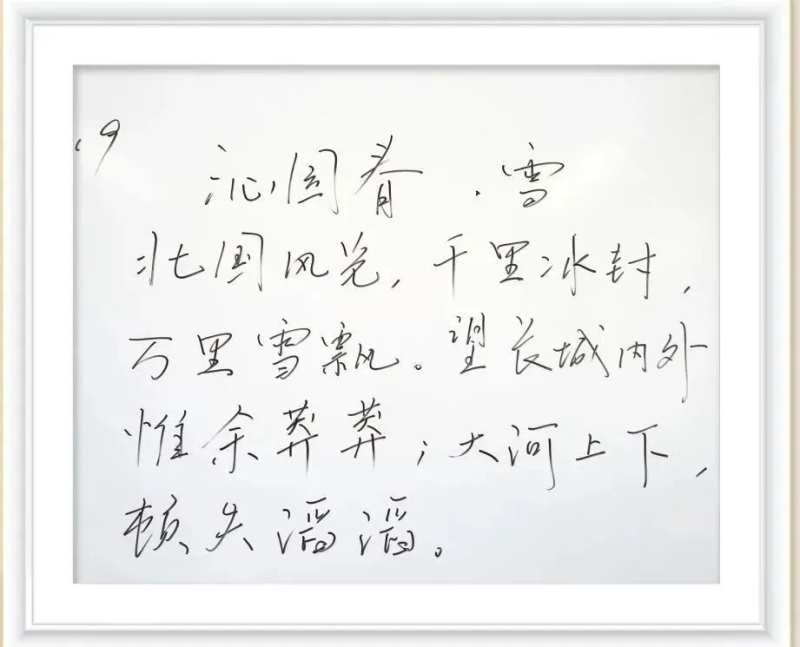 19
沁园春·雪
北国风光，千里冰封，
万里雪飘。望长城内外
惟余莽莽；大河上下，
顿失滔滔。